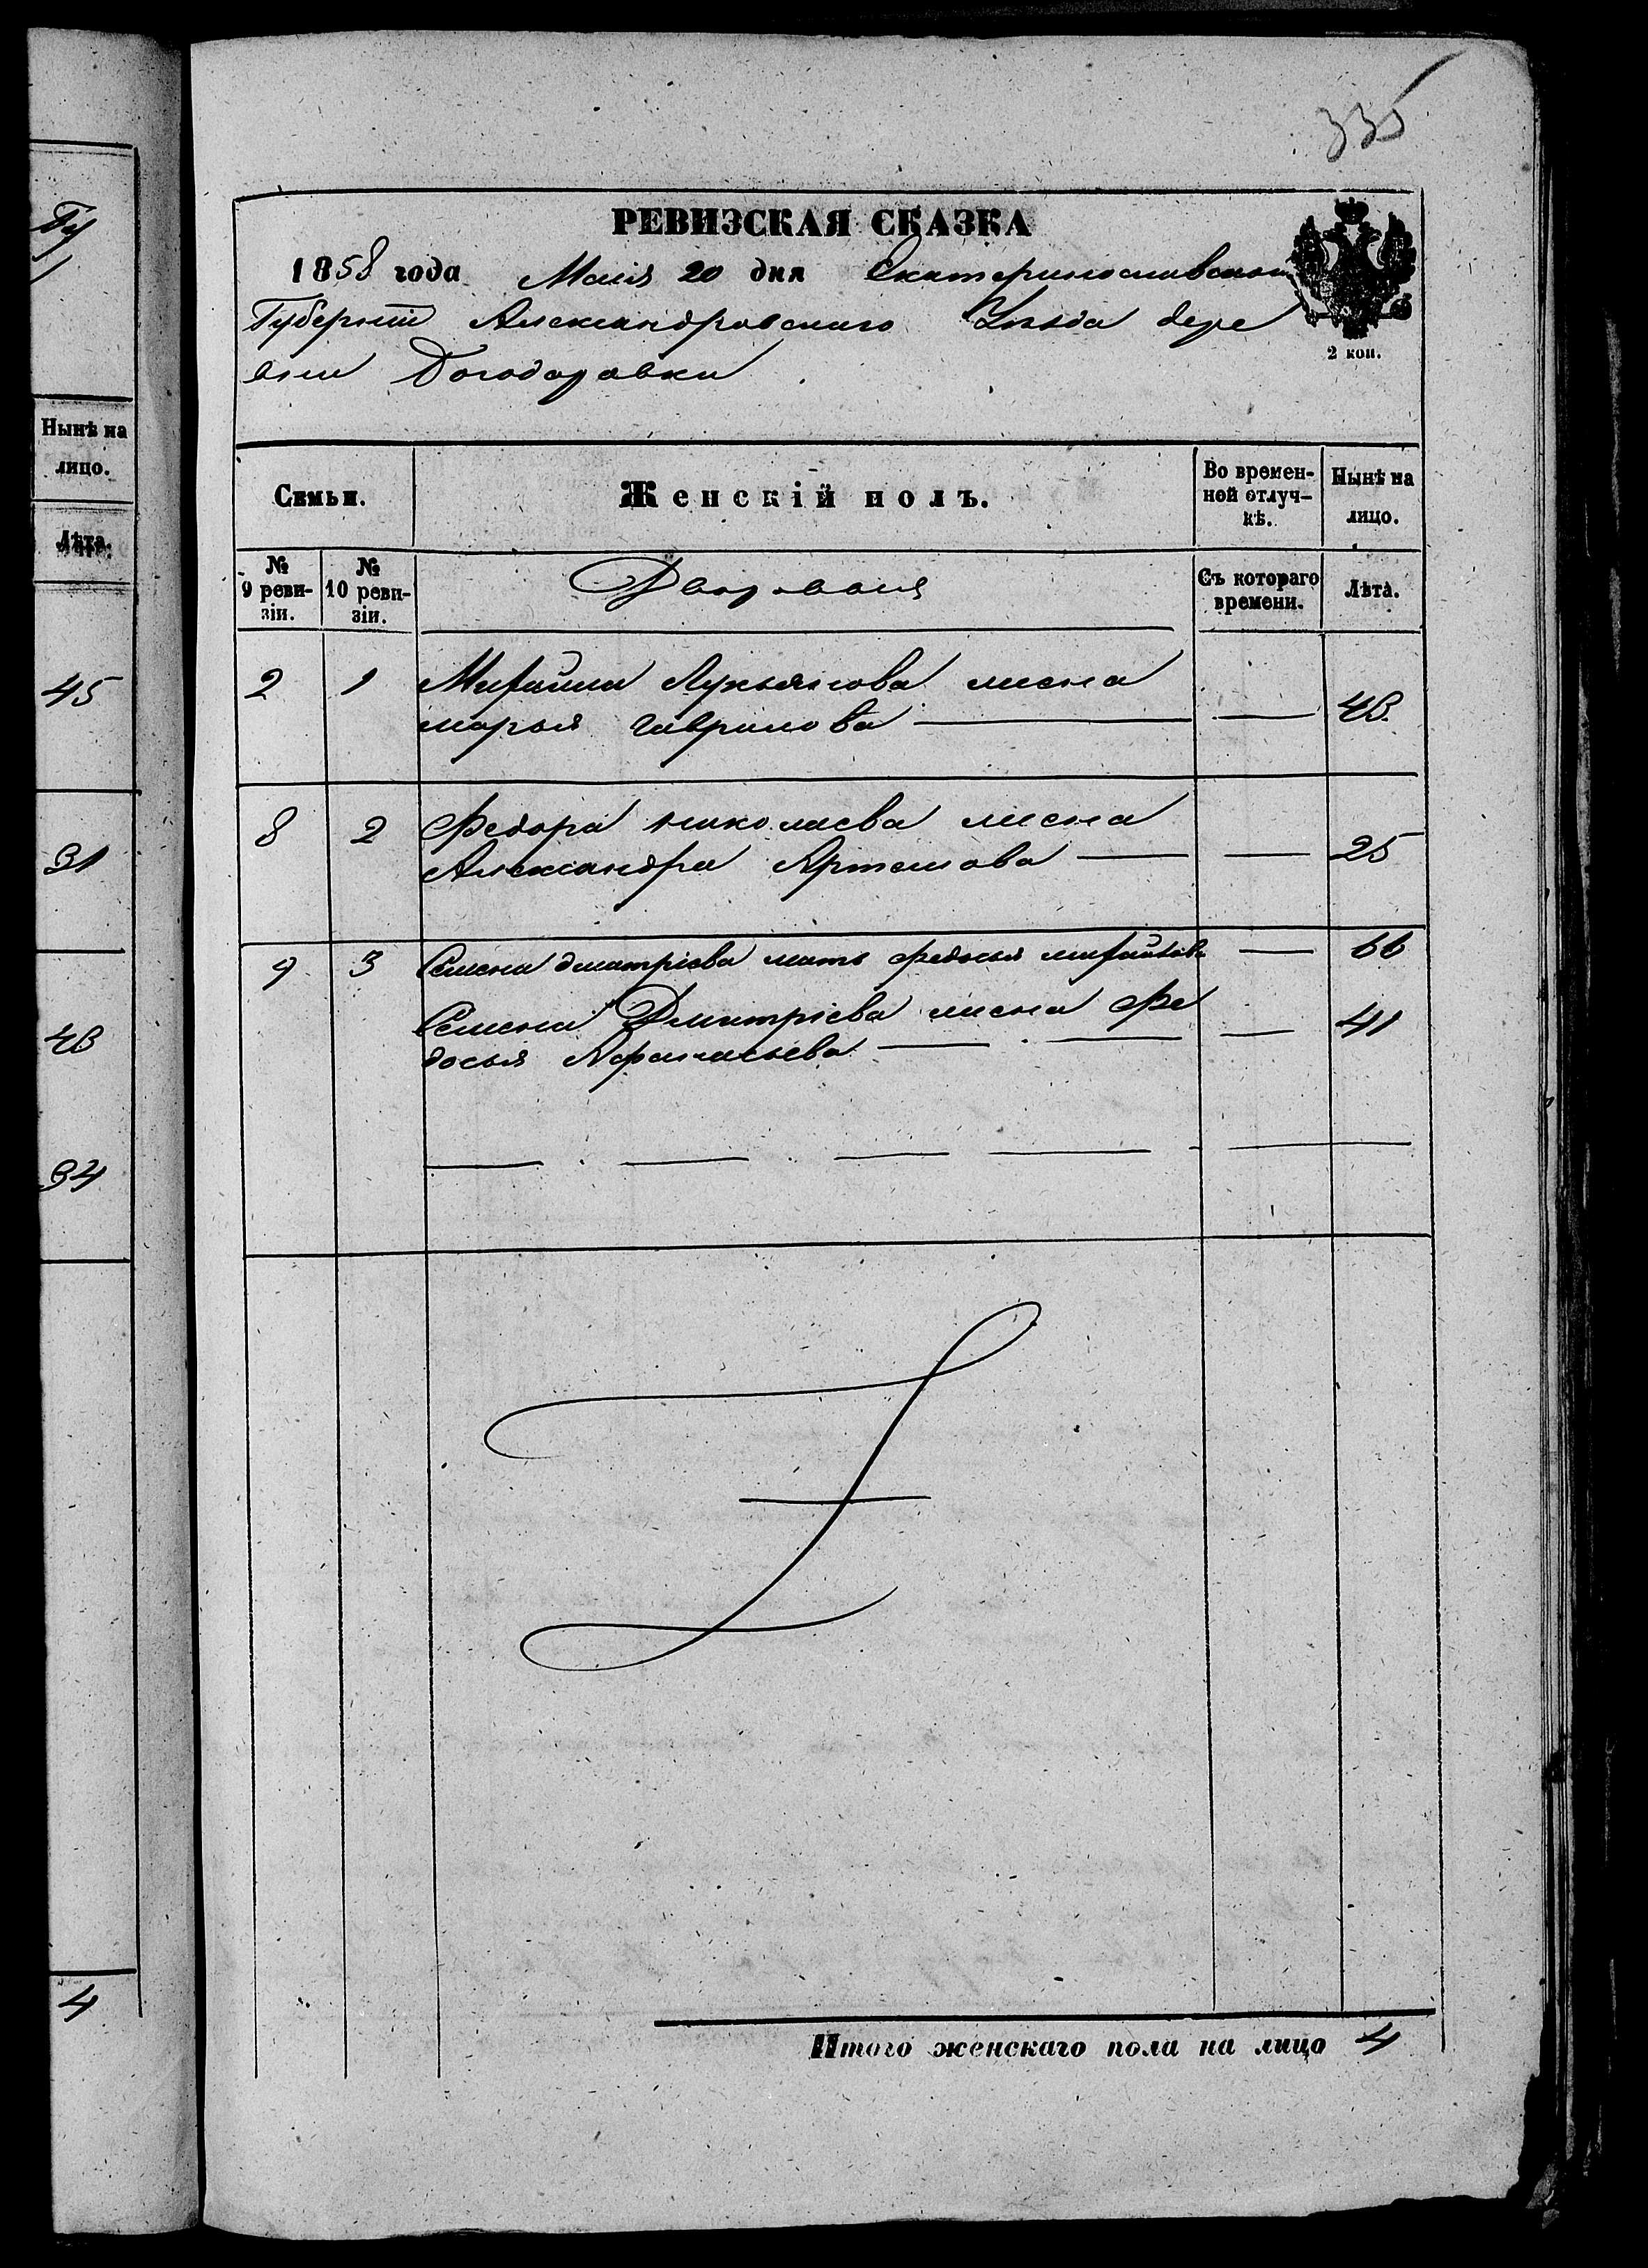 Гу
Нынѣ на
лицо.
Лѣта.
45
31
43
34
4
335
РЕВИЗСКАЯ СКАЗКА
1858 года Маія 20 дня Екатеринославской
Губерніи Александровскаго Уѣзда дере
вни Богодаровки
2 коп.
Семьи.
Женскій полъ.
Во времен-
ной отлуч-
кѣ.
Нынѣ на
лицо.
№
9 реви-
зіи.
№
10 реви-
зіи.
Дворовыя
Съ котораго
времени.
Лѣта.
2 1 Михайла Лукьянова жена
марья гаврилова 43
8 2 Федора николаева жена
Александра Артемова 25
9 3 Семена дмитріева мать федосья михайлова 66
Семена Дмитріева жена Фе
досья Афанасьева 41
Итого женскаго пола на лицо 4